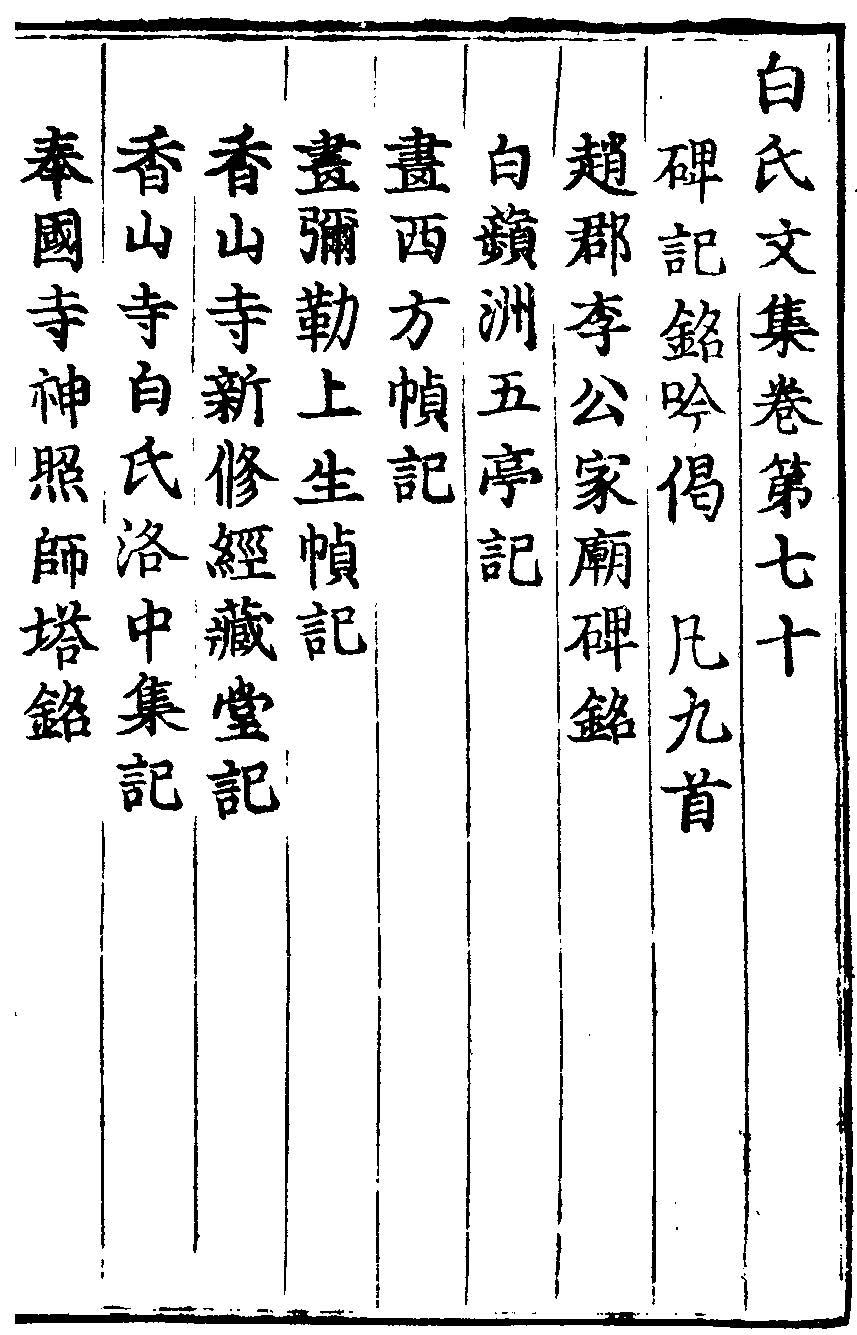 白氏文集卷第七十
碑記銘吟偈　凡九首
趙郡李公家廟碑銘
白蘋洲五亭記
畫西方幀記
畫彌勒上生幀記
香山寺新修經藏堂記
香山寺白氏洛中集記
奉國寺神照師塔銘